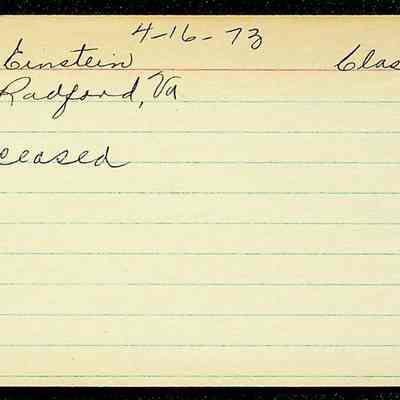 4-16-73
Einstein Clas
Radford, Va
ceased